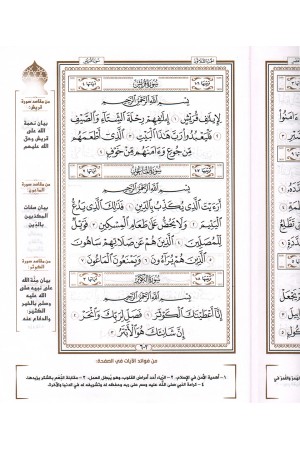 سُورَةُ قُرَيْشٍ
بِسْمِ اللَّهِ الرَّحْمَٰنِ الرَّحِيمِ
لِإِيلَافِ قُرَيْشٍ ۝ إِيلَافِهِمْ رِحْلَةَ الشِّتَاءِ وَالصَّيْفِ
۝ فَلْيَعْبُدُوا رَبَّ هَٰذَا الْبَيْتِ ۝ الَّذِي أَطْعَمَهُم
مِّن جُوعٍ وَآمَنَهُم مِّنْ خَوْفٍ ۝
سُورَةُ المَاعُونِ
بِسْمِ اللَّهِ الرَّحْمَٰنِ الرَّحِيمِ
أَرَأَيْتَ الَّذِي يُكَذِّبُ بِالدِّينِ ۝ فَذَٰلِكَ الَّذِي يَدُعُّ
الْيَتِيمَ ۝ وَلَا يَحُضُّ عَلَىٰ طَعَامِ الْمِسْكِينِ ۝ فَوَيْلٌ
لِّلْمُصَلِّينَ ۝ الَّذِينَ هُمْ عَن صَلَاتِهِمْ سَاهُونَ
۝ الَّذِينَ هُمْ يُرَاءُونَ ۝ وَيَمْنَعُونَ الْمَاعُونَ ۝
سُورَةُ الكَوْثَرِ
بِسْمِ اللَّهِ الرَّحْمَٰنِ الرَّحِيمِ
إِنَّا أَعْطَيْنَاكَ الْكَوْثَرَ ۝ فَصَلِّ لِرَبِّكَ وَانْحَرْ ۝
إِنَّ شَانِئَكَ هُوَ الْأَبْتَرُ ۝
٦٠٢
من مقاصد سورة
قريش:
بيان نعمة
الله على
قريش وحق
الله عليهم
من مقاصد سورة
الماعون:
بيان صفات
المكذبين
بالدين
من مقاصد سورة
الكوثر:
بيان منة الله
على نبيه صلى
الله عليه
وسلم بالخير
الكثير
والدفاع عنه
من فوائد الآيات في الصفحة:
١- أهمية الأمن في الإسلام. ٢- الرياء أحد أمراض القلوب، وهو يبطل العمل. ٣- مقابلة النعم بالشكر يزيدها.
٤- كرامة النبي صلى الله عليه وسلم على ربه وحفظه له وتشريفه له في الدنيا والآخرة.